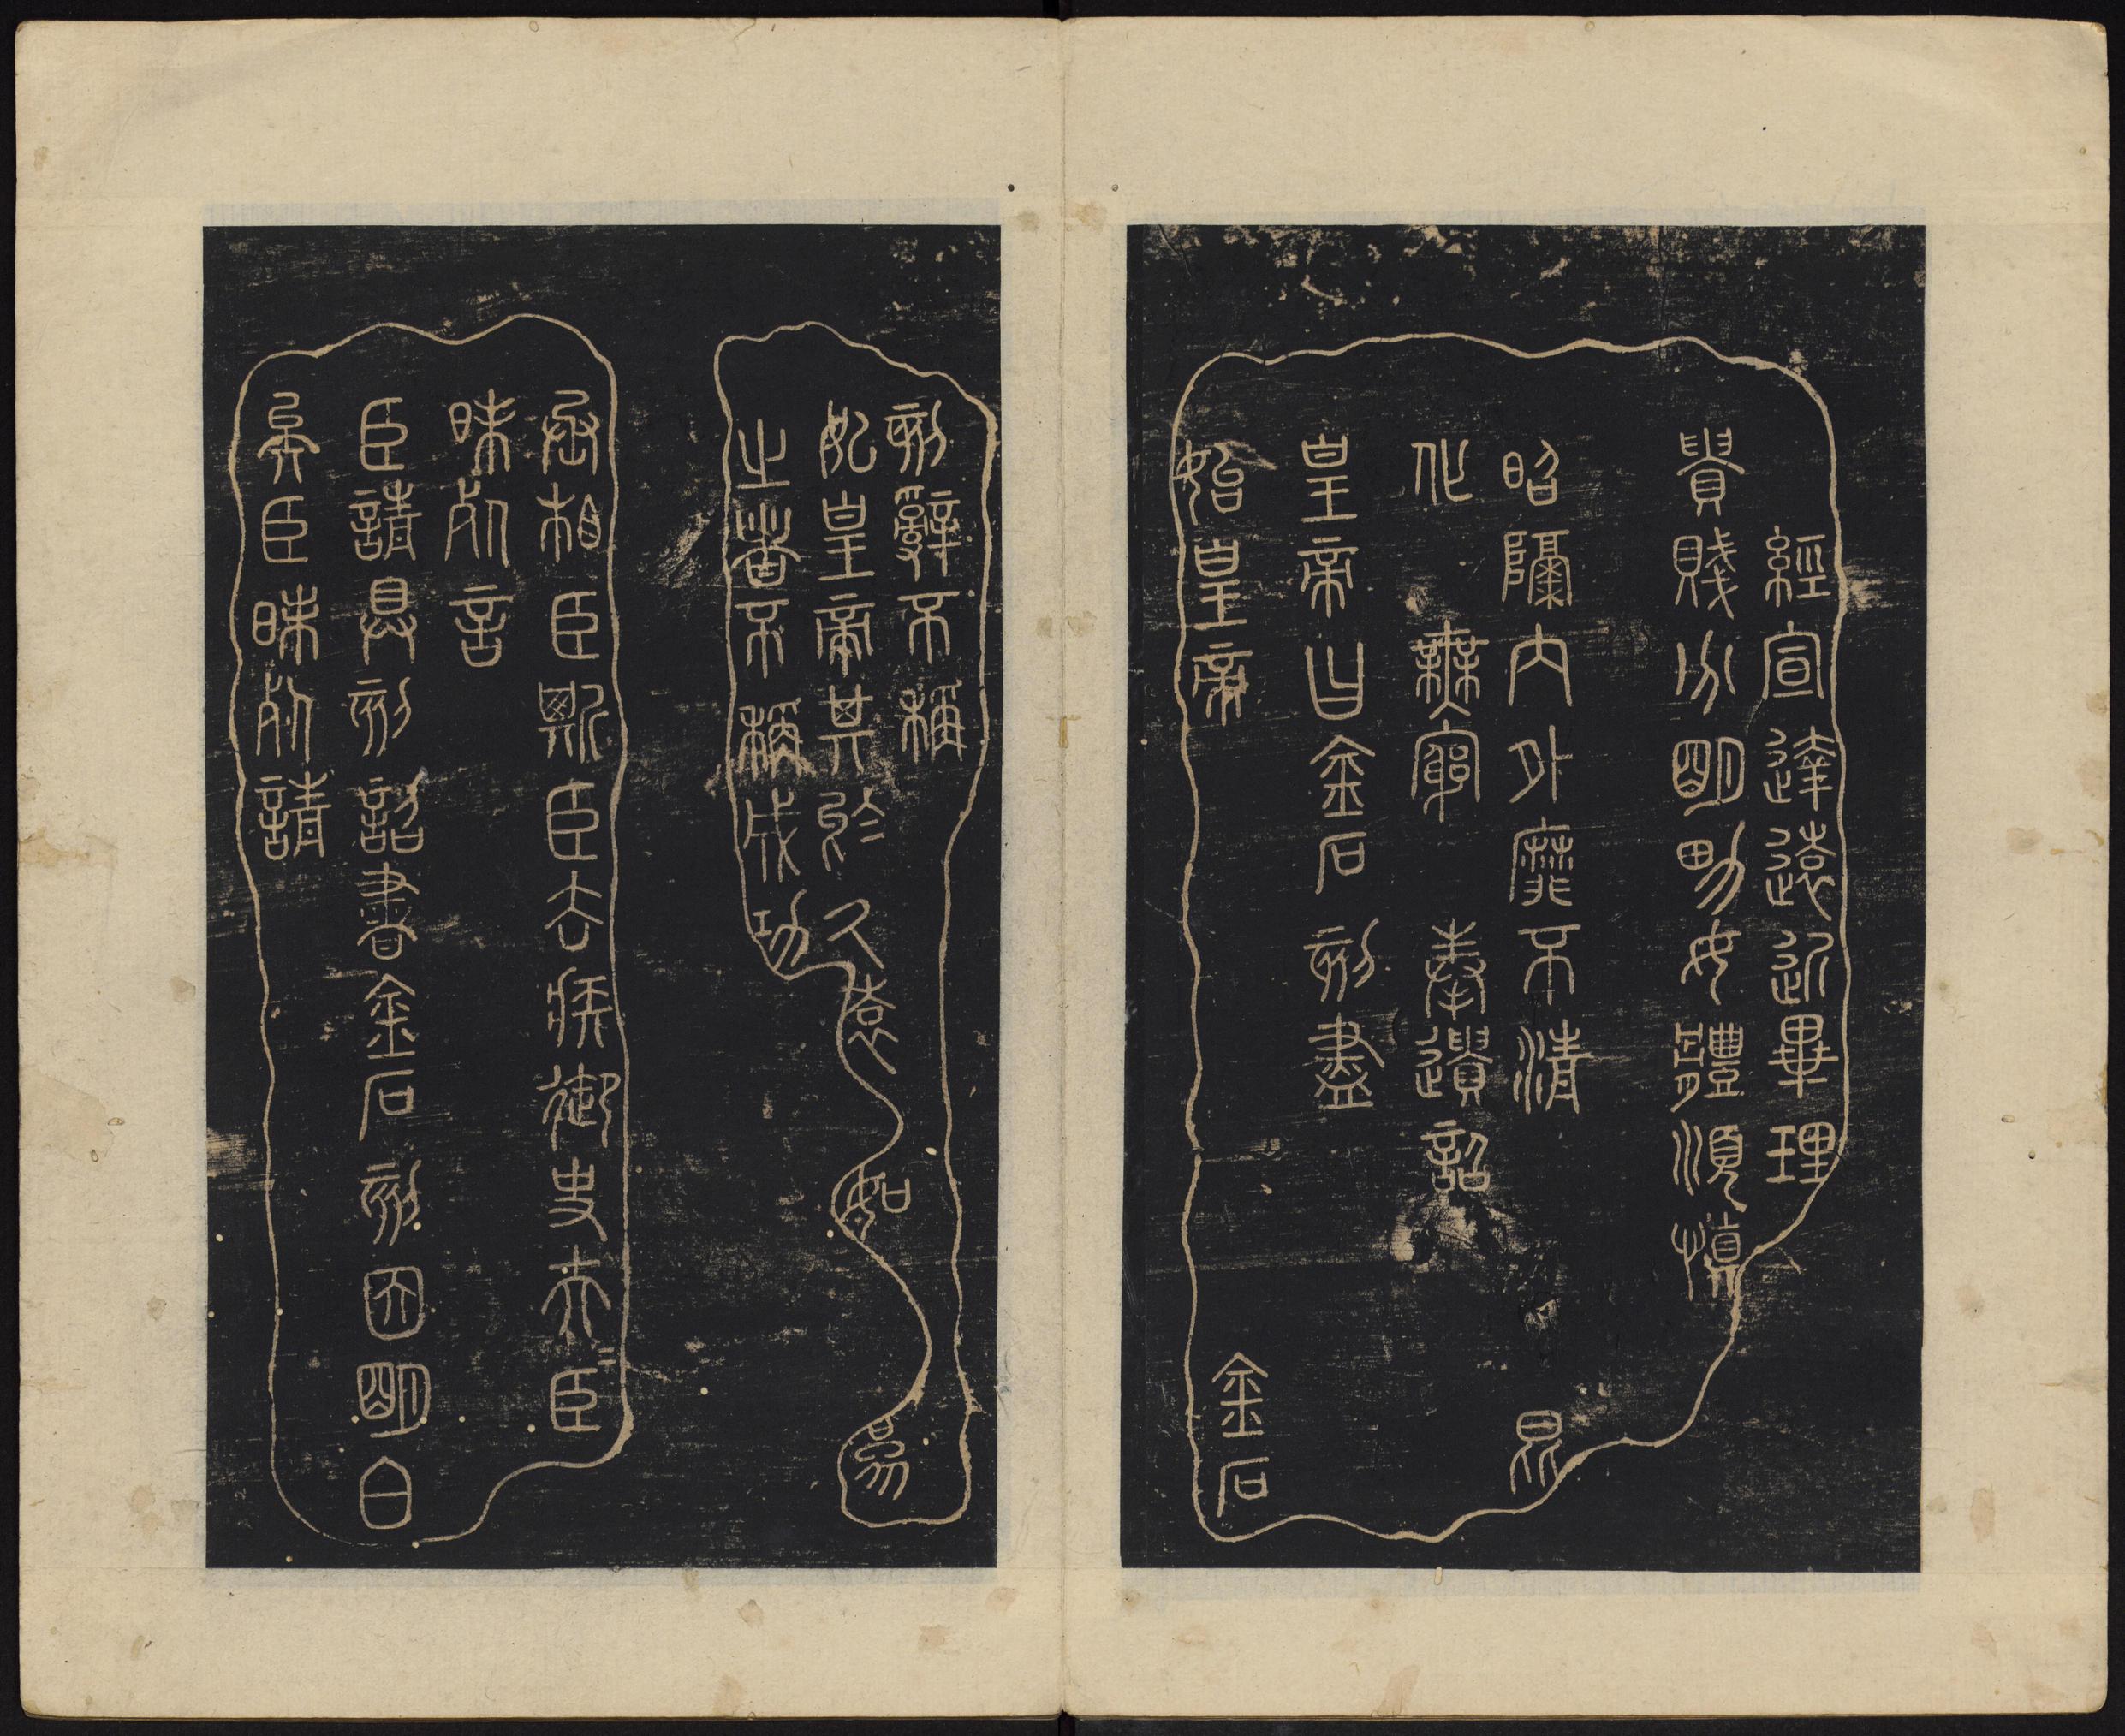 經宣達遠近畢理
貴賤分明男女體順慎
昭隔內外靡不清 昆
化 無窮 奉遺詔
皇帝曰金石刻盡
始皇帝 金石
刻辭不稱
始皇帝其於久遠 如 爲
之者不稱成功
丞相臣斯臣去疾御史夫=臣
昧死言
臣請具刻詔書金石刻因明白
矣臣昧死請